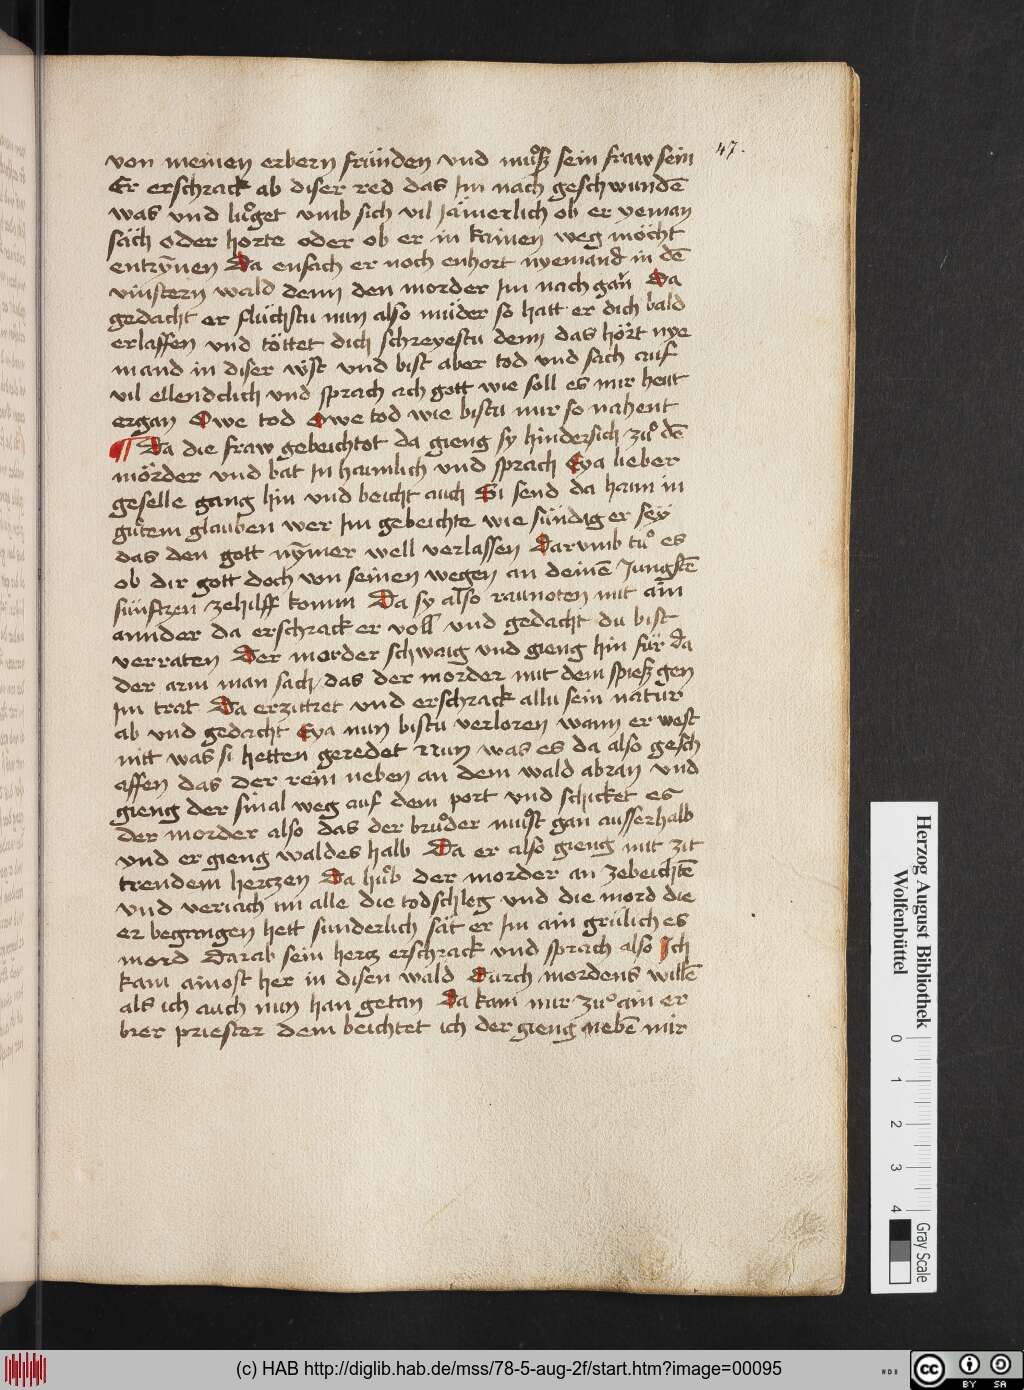 47.
von meinen erbern fründen vnd muͦsz sein fraw sein
Er erschrack ab diser red das Im nach geschwundē
was vnd luͦget vmb sich vil Jämerlich ob er yeman
säch oder horte oder ob er in kainen weg möcht
entrȳnen Da ensach er noch enhort nyemand in dē
vinstern wald denn den morder Im nach gān Da
gedacht er flüchstu nun also müder so hatt er dich bald
erlaffen vnd töttet dich schreyestu denn das hört nye
mand in diser wÿst vnd bist aber tod vnd sach auf
vil ellendclich vnd sprach ach gott wie soll es mir heüt
ergan Owe tod Owe tod wie bistu mir so nahent
Da die fraw gebeichtot da gieng sy hindersich zuͦ dē
mörder vnd bat In haimlich vnd sprach Eya lieber
geselle gang hin vnd beicht auch Si send da haim in
guͦtem glauben wer Im gebeichte wie sündig er sey
das den gott nȳmer well verlassen Darvmb tuͦ es
ob dir gott doch von seinen wegen an deinē Jungstē
süuftzen zehilff komm Da sy also raunoten mit ain
annder da erschrack er voll vnd gedacht du bist
verraten Der morder schwaig vnd gieng hin für da
der arm man sach das der morder mit dem spiesz gen
Im trat Da erzittret vnd erschrack allu sein natur
ab vnd gedacht Eya nun bistu verloren wann er west
nitt was si hetten geredet Nun was es da also gesch
affen das der rein neben an dem wald abran vnd
gieng der smal weg auf dem port vnd schicket es
der morder also das der bruͦder muͦst gan ausserhalb
vnd er gieng waldes halb Da er also gieng mit zit
trendem hertzen Da huͦb der morder an zebeichtē
vnd veriach im alle die todschleg vnd die mord die
er begangen hett sunderlich sät er Im ain grülich es
mord Darab sein hertz erschrack vnd sprach also Ich
kam ainost her in disen wald Durch mordens willē
als ich auch nun han getan Da kam mir zuͦ ain er
brer priester dem beichtet ich der gieng nebē mir
Herzog August Bibliothek
Wolfenbüttel
0 1 2 3 4
Gray Scale
(c) HAB http://diglib.hab.de/mss/78-5-aug-2f/start.htm?image=00095
WDB
cc BY SA